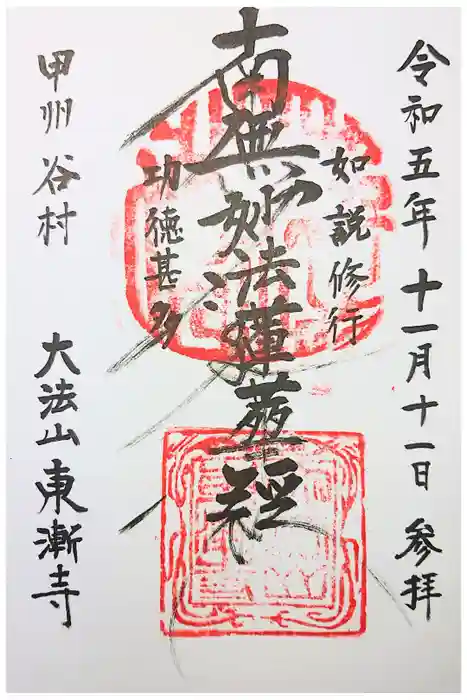 令和五年十一月十一日 参拝
如説修行
南無妙法蓮華経
功徳甚多
甲州谷村 大法山東漸寺